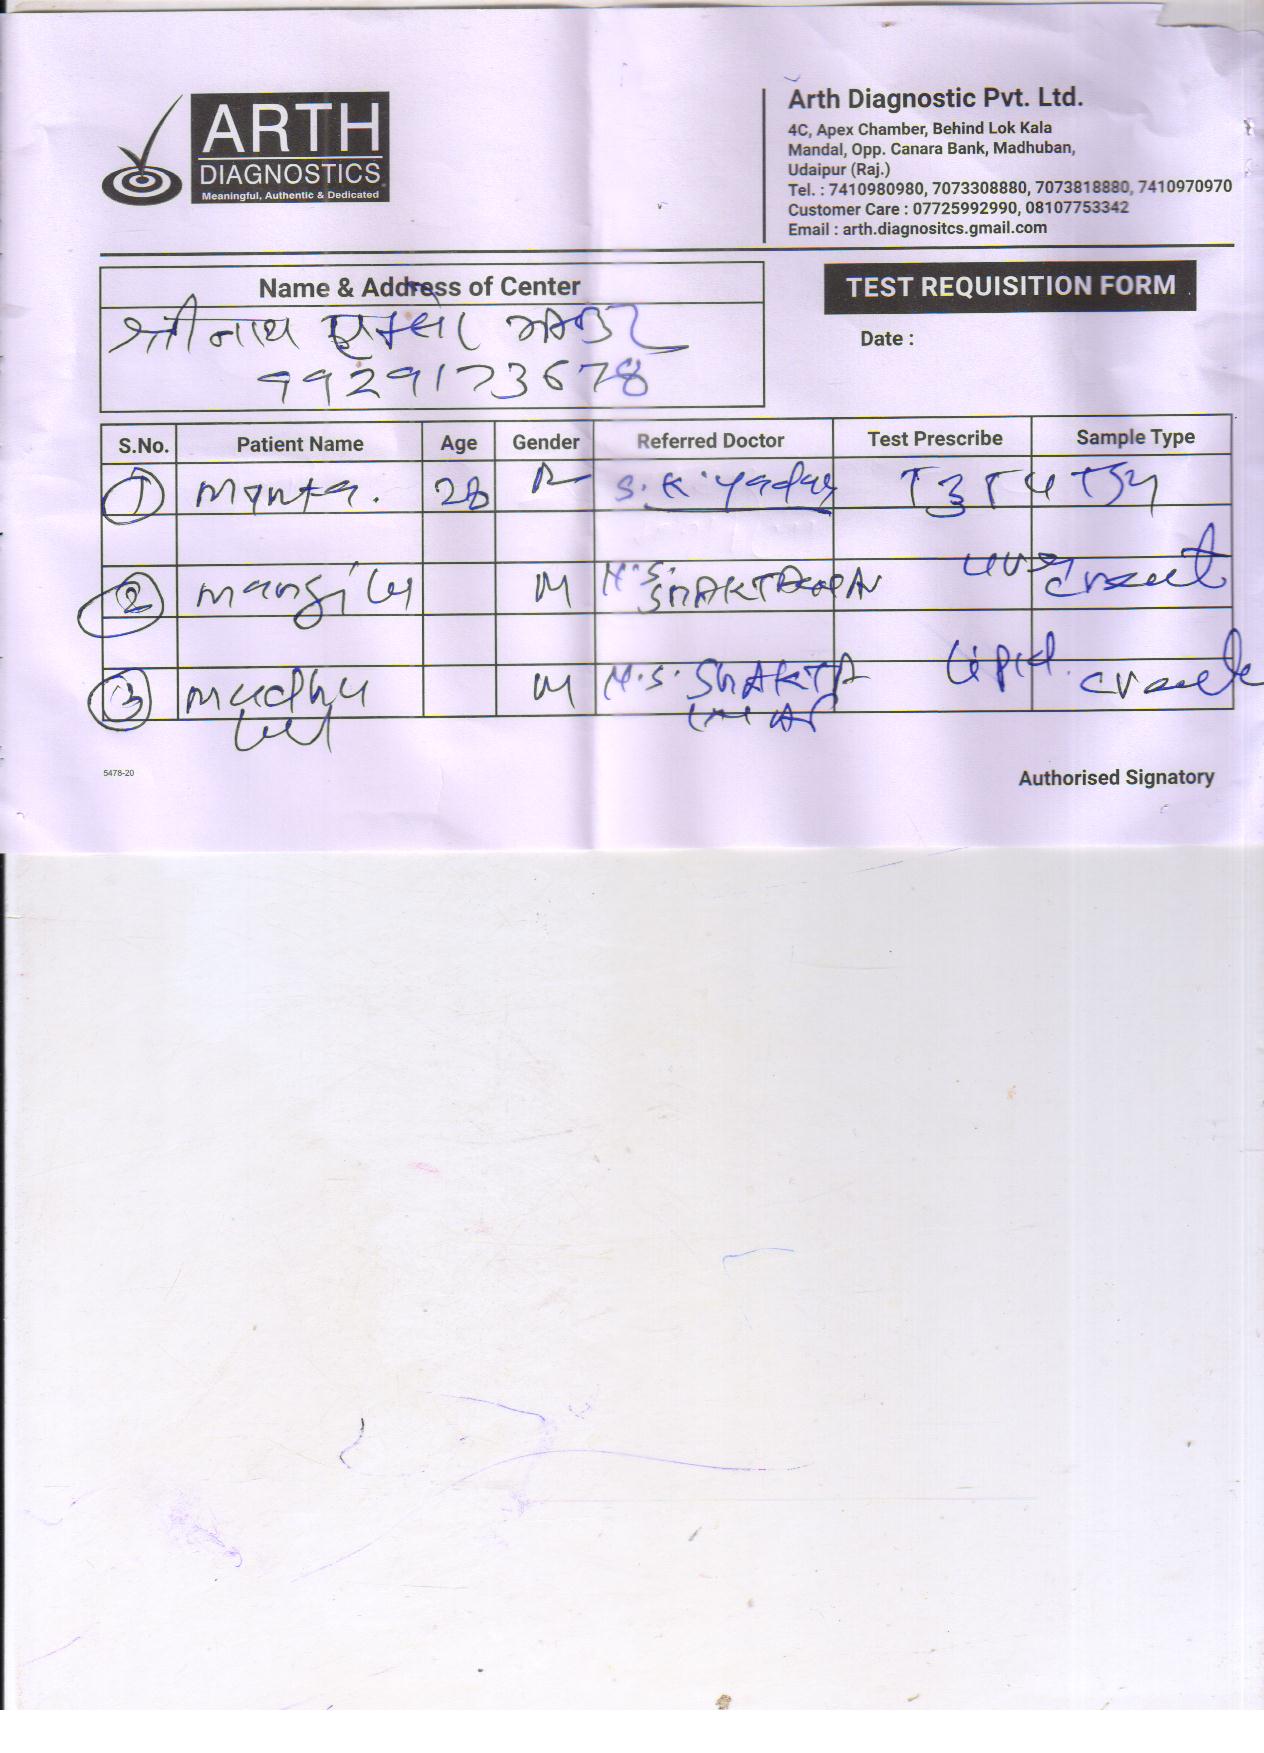 ARTH
DIAGNOSTICS
Meaningful, Authentic & Dedicated
Arth Diagnostic Pvt. Ltd.
4C, Apex Chamber, Behind Lok Kala
Mandal, Opp. Canara Bank, Madhuban,
Udaipur (Raj.)
Tel. : 7410980980, 7073308880, 7073818880, 7410970970
Customer Care : 07725992990, 08107753342
Email : arth.diagnositcs.gmail.com
Name & Address of Center
TEST REQUISITION FORM
श्रीनाथ
Date :
9929173678
S.No. Patient Name Age Gender Referred Doctor Test Prescribe Sample Type
1 28 S.K. Yadav T3 T4 TSH
2 M
Lipid
3 Madhu M M.S. SHAKTA
Lal
5478-20
Authorised Signatory